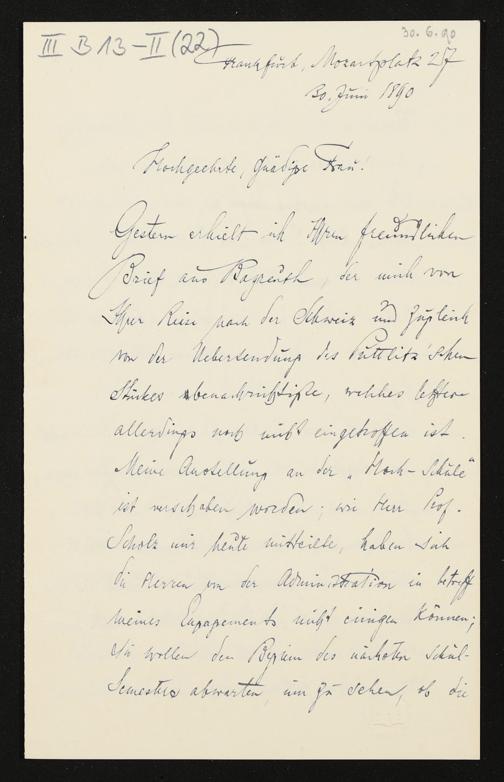 III B 13 – II (22)
30.6.90
Frankfurt, Mozartplatz 27
30. Juni 1890
Hochgeehrte, gnädige Frau!
Gestern erhielt ich Ihren freundlichen
Brief aus Bayreuth, der mich von
Ihrer Reise nach der Schweiz und zugleich
von der Uebersendung des Puttlitz'schen
Stückes benachrichtigte, welches letztere
allerdings noch nicht eingetroffen ist.
Meine Anstellung an der „Hoch-Schule"
ist verschoben worden; wie Herr Prof.
Scholz mir heute mitteilte, haben sich
die Herren von der Administration in betreff
meines Engagements nicht einigen können;
sie wollen den Beginn des nächsten Schul-
Semesters abwarten, um zu sehen, ob die